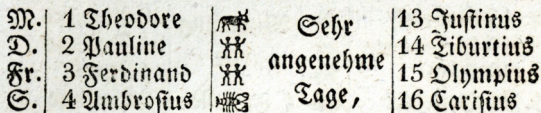 M. 1 Theodore Sehr 13 Juſtinus
D. 2 Pauline angenehme 14 Tiburtius
Fr. 3 Ferdinand Tage, 15 Olympius
S. 4 Ambroſius 16 Cariſius